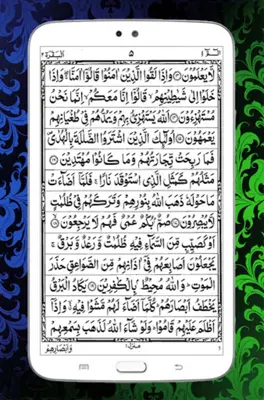 الٓمّٓ ١ ٥ البقرة ٢
لَّا يَعْلَمُوْنَ ۝ وَاِذَا لَقُوا الَّذِيْنَ اٰمَنُوْا قَالُوْٓا اٰمَنَّا ۚ وَاِذَا
خَلَوْا اِلٰى شَيٰطِيْنِهِمْ ۙ قَالُوْٓا اِنَّا مَعَكُمْ ۙ اِنَّمَا نَحْنُ
مُسْتَهْزِءُوْنَ ۝ اَللّٰهُ يَسْتَهْزِئُ بِهِمْ وَيَمُدُّهُمْ فِيْ طُغْيَانِهِمْ
يَعْمَهُوْنَ ۝ اُولٰٓئِكَ الَّذِيْنَ اشْتَرَوُا الضَّلٰلَةَ بِالْهُدٰى
فَمَا رَبِحَتْ تِّجَارَتُهُمْ وَمَا كَانُوْا مُهْتَدِيْنَ ۝
مَثَلُهُمْ كَمَثَلِ الَّذِى اسْتَوْقَدَ نَارًا ۚ فَلَمَّآ اَضَآءَتْ
مَا حَوْلَهٗ ذَهَبَ اللّٰهُ بِنُوْرِهِمْ وَتَرَكَهُمْ فِيْ ظُلُمٰتٍ
لَّا يُبْصِرُوْنَ ۝ صُمٌّۢ بُكْمٌ عُمْيٌ فَهُمْ لَا يَرْجِعُوْنَ ۝
اَوْ كَصَيِّبٍ مِّنَ السَّمَآءِ فِيْهِ ظُلُمٰتٌ وَّرَعْدٌ وَّبَرْقٌ ۚ
يَجْعَلُوْنَ اَصَابِعَهُمْ فِيْٓ اٰذَانِهِمْ مِّنَ الصَّوَاعِقِ حَذَرَ
الْمَوْتِ ؕ وَاللّٰهُ مُحِيْطٌۢ بِالْكٰفِرِيْنَ ۝ يَكَادُ الْبَرْقُ
يَخْطَفُ اَبْصَارَهُمْ ؕ كُلَّمَآ اَضَآءَ لَهُمْ مَّشَوْا فِيْهِ ۙ وَاِذَآ
اَظْلَمَ عَلَيْهِمْ قَامُوْا ؕ وَلَوْ شَآءَ اللّٰهُ لَذَهَبَ بِسَمْعِهِمْ
منزل ١ وَاَبْصَارِهِمْ